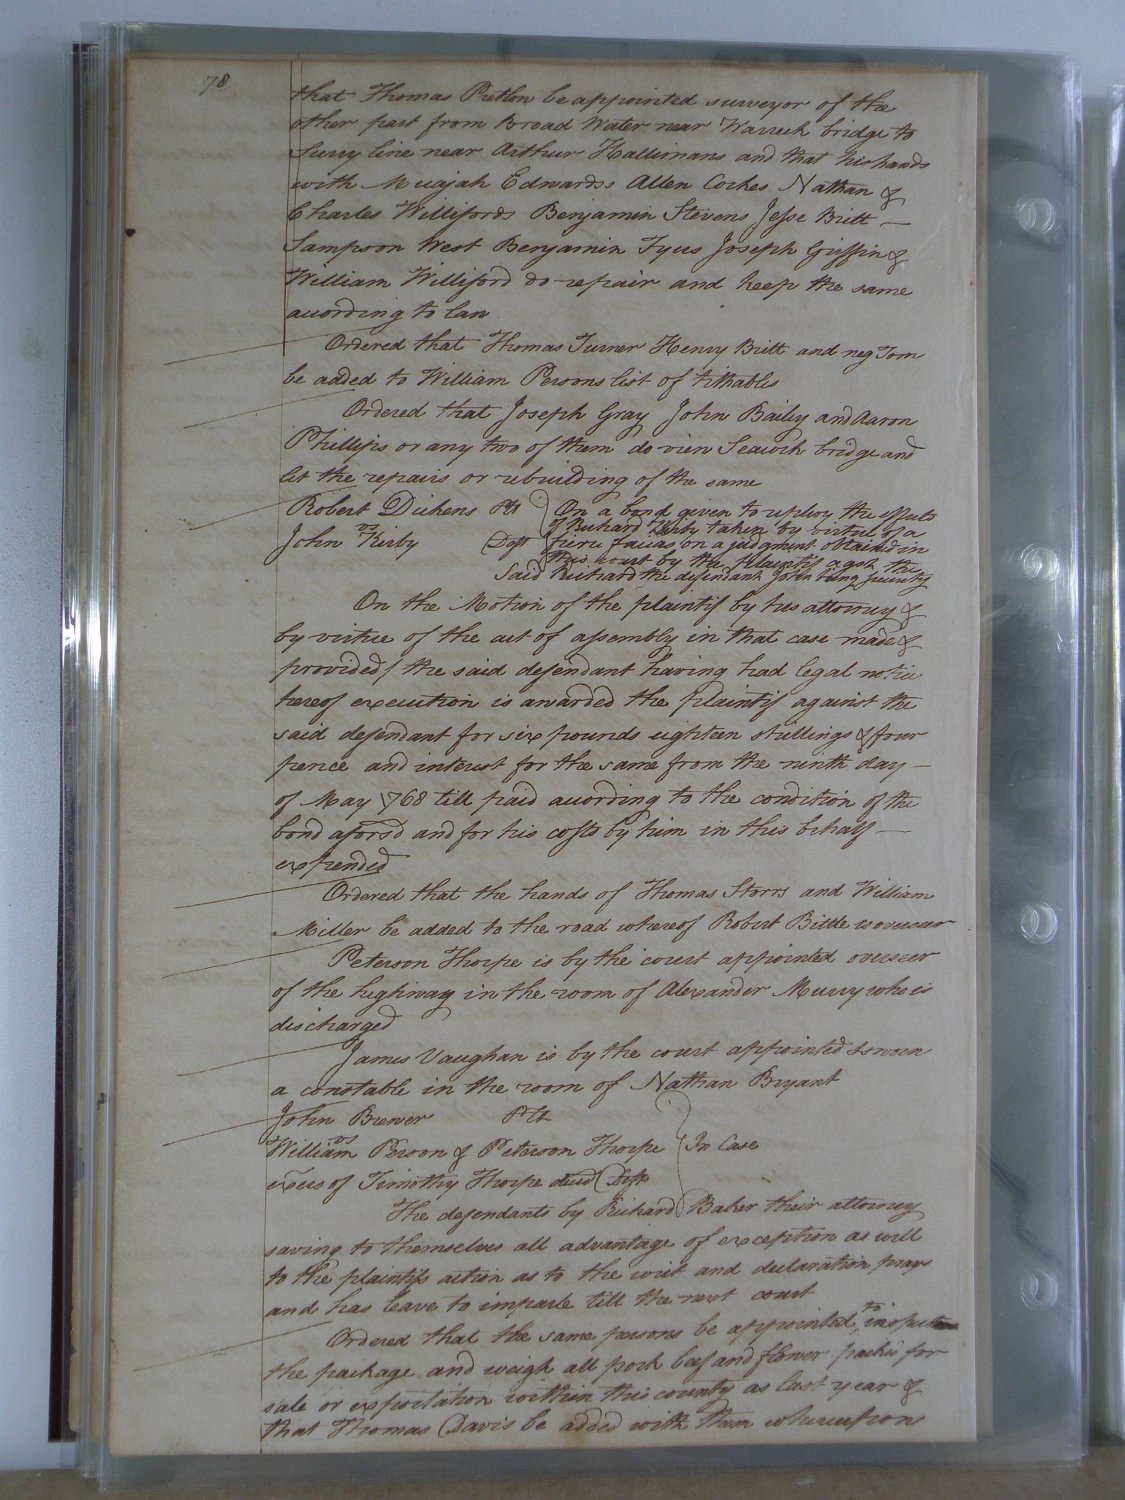 78
that Thomas Pretlow be appointed surveyor of the
other part from Broad Water near Warrick bridge to
Surry line near Arthur Hallimans and that his hands
with Micajah Edwardss Allen Cockes Nathan &
Charles Willifords Benjamin Stevens Jesse Britt
Sampson West Benjamin Tyus Joseph Griffin &
William Williford do repair and keep the same
according to law
Ordered that Thomas Turner Henry Britt and neg Tom
be added to William Persons list of tithables
Ordered that Joseph Gray John Bailey and Aaron
Phillips or any two of them do view Seacock bridge and
let the repairs or rebuilding of the same
Robert Dickens Plt On a bond given to replevy the effects
vs of Richard Kirby taken by virtue of a
John Kirby Deft fieri facias on a judgment obtained in
this court by the plaintif agst the
said Richard the defendant John being security
On the Motion of the plaintif by his attorney &
by virtue of the act of assembly in that case made &
provided / the said defendant having had legal notice
hereof execution is awarded the plaintif against the
said defendant for six pounds eighteen shillings & four
pence and interest for the same from the ninth day
of May 1768 till paid according to the condition of the
bond aforsd and for his costs by him in this behalf
expended
Ordered that the hands of Thomas Storrs and William
Miller be added to the road whereof Robert Bittle is overseer
Peterson Thorpe is by the court appointed overseer
of the highway in the room of Alexander Murry who is
discharged
James Vaughan is by the court appointed & sworn
a constable in the room of Nathan Bryant
John Brewer Plt
vs
William Person & Peterson Thorpe In Case
exers of Timothy Thorpe decd Defts
The defendants by Richard Baker their attorney
saving to themselves all advantage of exception as will
to the plaintifs action as to the writ and declaration prays
and has leave to imparle till the next court
Ordered that the same persons be appointed to inspect
the package and weigh all pork beef and flower packed for
sale or exportation within this county as last year &
that Thomas Davis be added with them whereupon